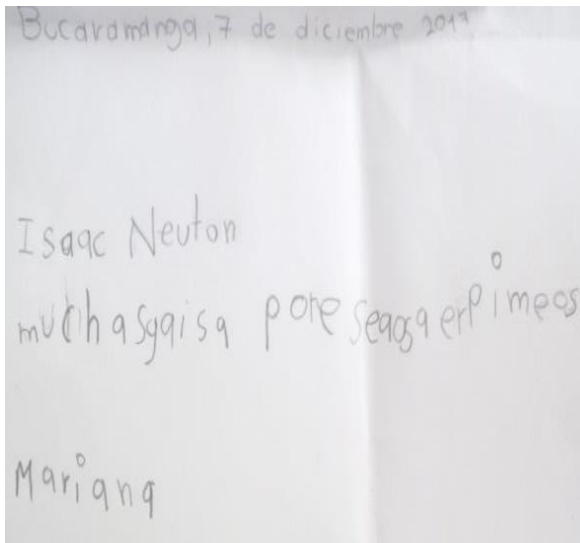 Bucaramanga, 7 de diciembre 2017
Isaac Neuton
muchasgaisa pore seaosa erpimeos
Mariana